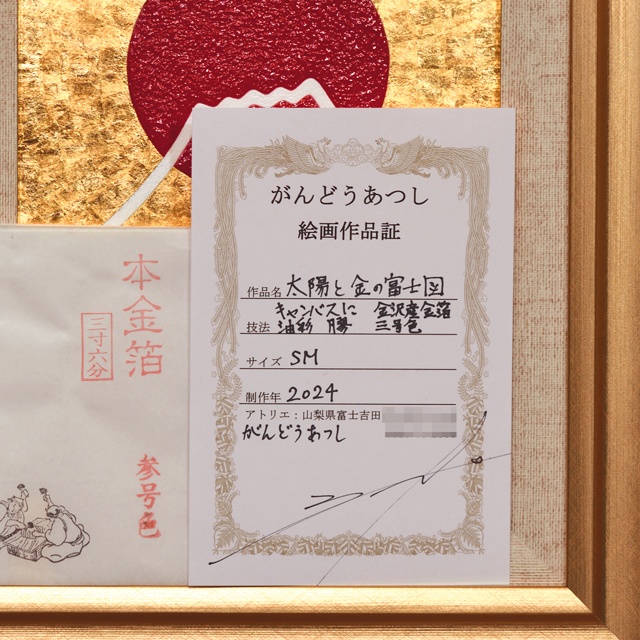 本金箔
三寸六分
参号色
がんどうあつし
絵画作品証
作品名 太陽と金の富士図
キャンバスに 金沢産金箔
技法 油彩 膠 三号色
サイズ SM
制作年 2024
アトリエ：山梨県富士吉田
がんどうあつし